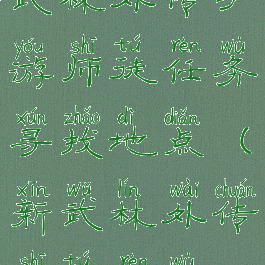 武林外传
yóu shī tú rèn wù
游师徒任务
xún zhǎo dì diǎn
寻找地点（
xīn wǔ lín wài chuán
新武林外传
shī tú rèn wù